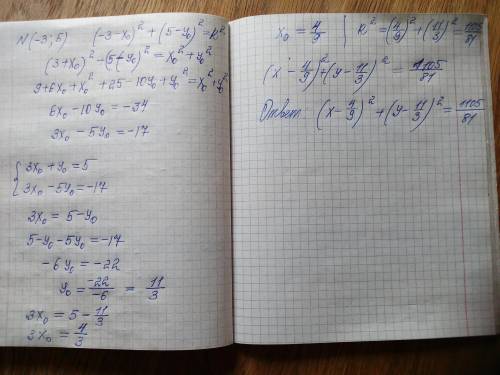 N(-3; 5)   (-3-x₀)² + (5-y₀)² = R²
(3+x₀)² - (5-y₀)² = x₀² + y₀²
9+6x₀+x₀² + 25-10y₀+y₀² = x₀² + y₀²
6x₀ - 10y₀ = -34
3x₀ - 5y₀ = -17
{ 3x₀ + y₀ = 5
3x₀ - 5y₀ = -17
3x₀ = 5 - y₀
5 - y₀ - 5y₀ = -17
-6y₀ = -22
y₀ = -22/-6 = 11/3
3x₀ = 5 - 11/3
3x₀ = 4/3
x₀ = 4/9 | R² = (4/9)² + (11/3)² = 1105/81
(x - 4/9)² + (y - 11/3)² = 1105/81
Ответ: (x - 4/9)² + (y - 11/3)² = 1105/81